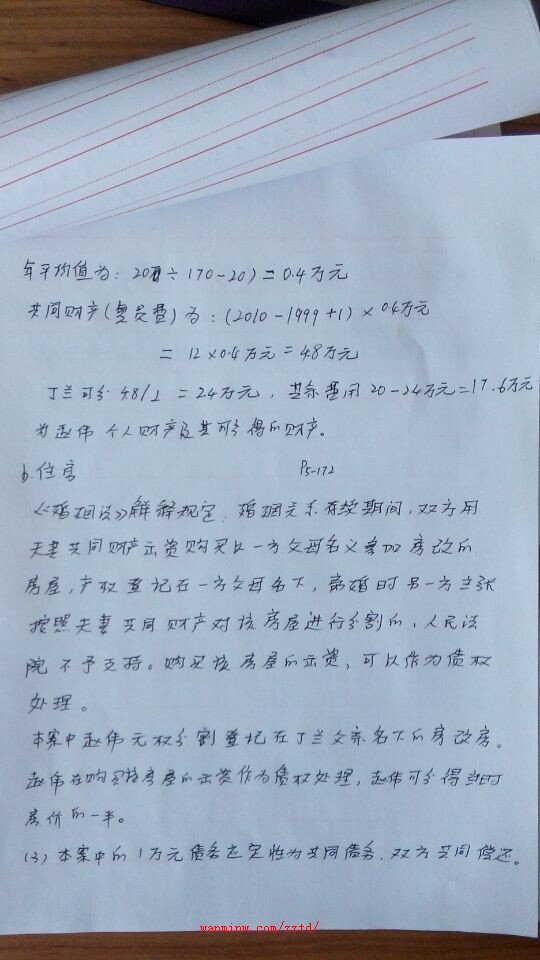 年平均值为：20万÷(70-20)=0.4万元
共同财产(复员费)为：(2010-1999+1)×0.4万元
=12×0.4万元=48万元
丁兰可分48/2=24万元，其余费用20-24万元=17.6万元
为赵伟个人财产及其可分得的财产。
b.住房 P5-172
《婚姻法》解释规定：婚姻关系存续期间，双方用
夫妻共同财产出资购买以一方父母名义参加房改的
房屋，产权登记在一方父母名下，离婚时另一方主张
按照夫妻共同财产对该房屋进行分割的，人民法
院不予支持。购买该房屋的出资，可以作为债权
处理。
本案中赵伟无权分割登记在丁兰父亲名下的房改房。
赵伟在购买该房屋的出资作为债权处理，赵伟可分得当时
房价的一半。
(3)本案中的1万元债务应定性为共同债务，双方共同偿还。
wanminw.com/zztd/